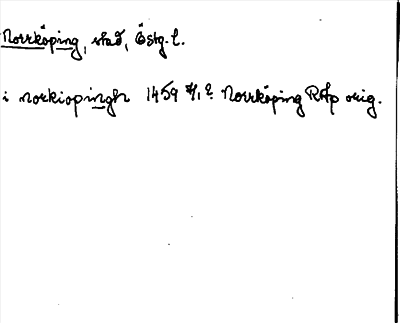 Norrköping, stad, Östg. l.
i norkiopingh 1459 /1 Norrköping RAp orig.